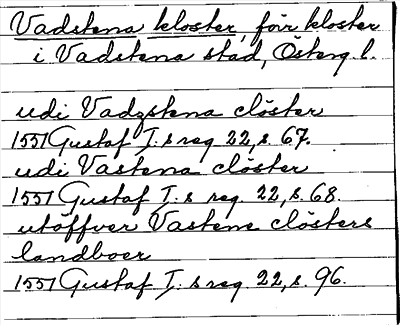 Vadstena kloster, förr kloster
i Vadstena stad, Österg l.
udi Vadzstena clöster
1551 Gustaf I:s reg 22, s. 67.
udi Vastena clöster
1551 Gustaf I:s reg. 22, s. 68.
utöffver Vastene clösters
landboer
1551 Gustaf I:s reg. 22, s. 96.